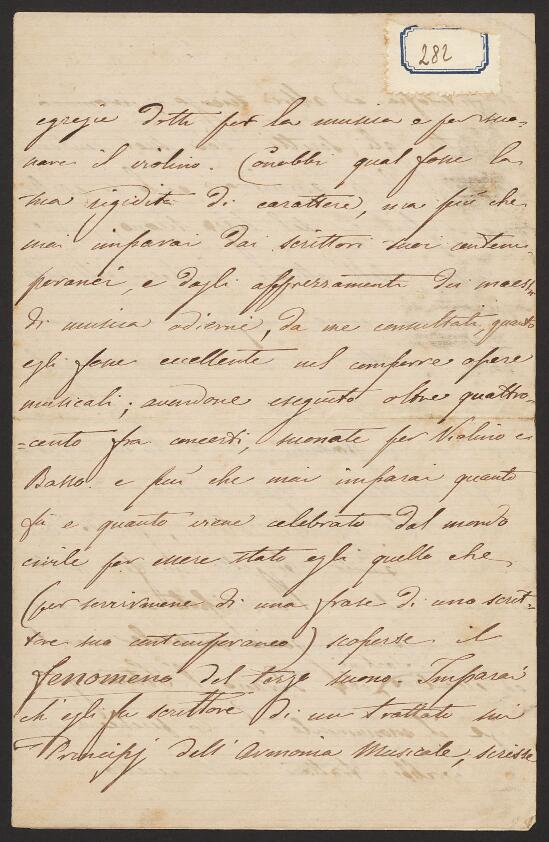 282
egregie doti per la musica e per suo-
nare il violino. Conobbi qual fosse la
sua rigidità di carattere, ma più che
mai imparai dai scrittori suoi contem-
poranei, e dagli apprezzamenti dei maestri
di musica odierni, da me consultati, quanto
egli fosse eccellente nel comporre opere
musicali; avendone eseguito oltre quattro-
=cento fra concerti, suonate per Violino e
Basso. e più che mai imparai quanto
fu e quanto viene celebrato dal mondo
civile per essere stato egli quello che
(per servirmene di una frase di uno scrit-
tore suo contemporaneo) scoperse il
fenomeno del terzo suono. Imparai
ch'egli fu scrittore di un trattato sui
Principj dell'Armonia Musicale, scrisse